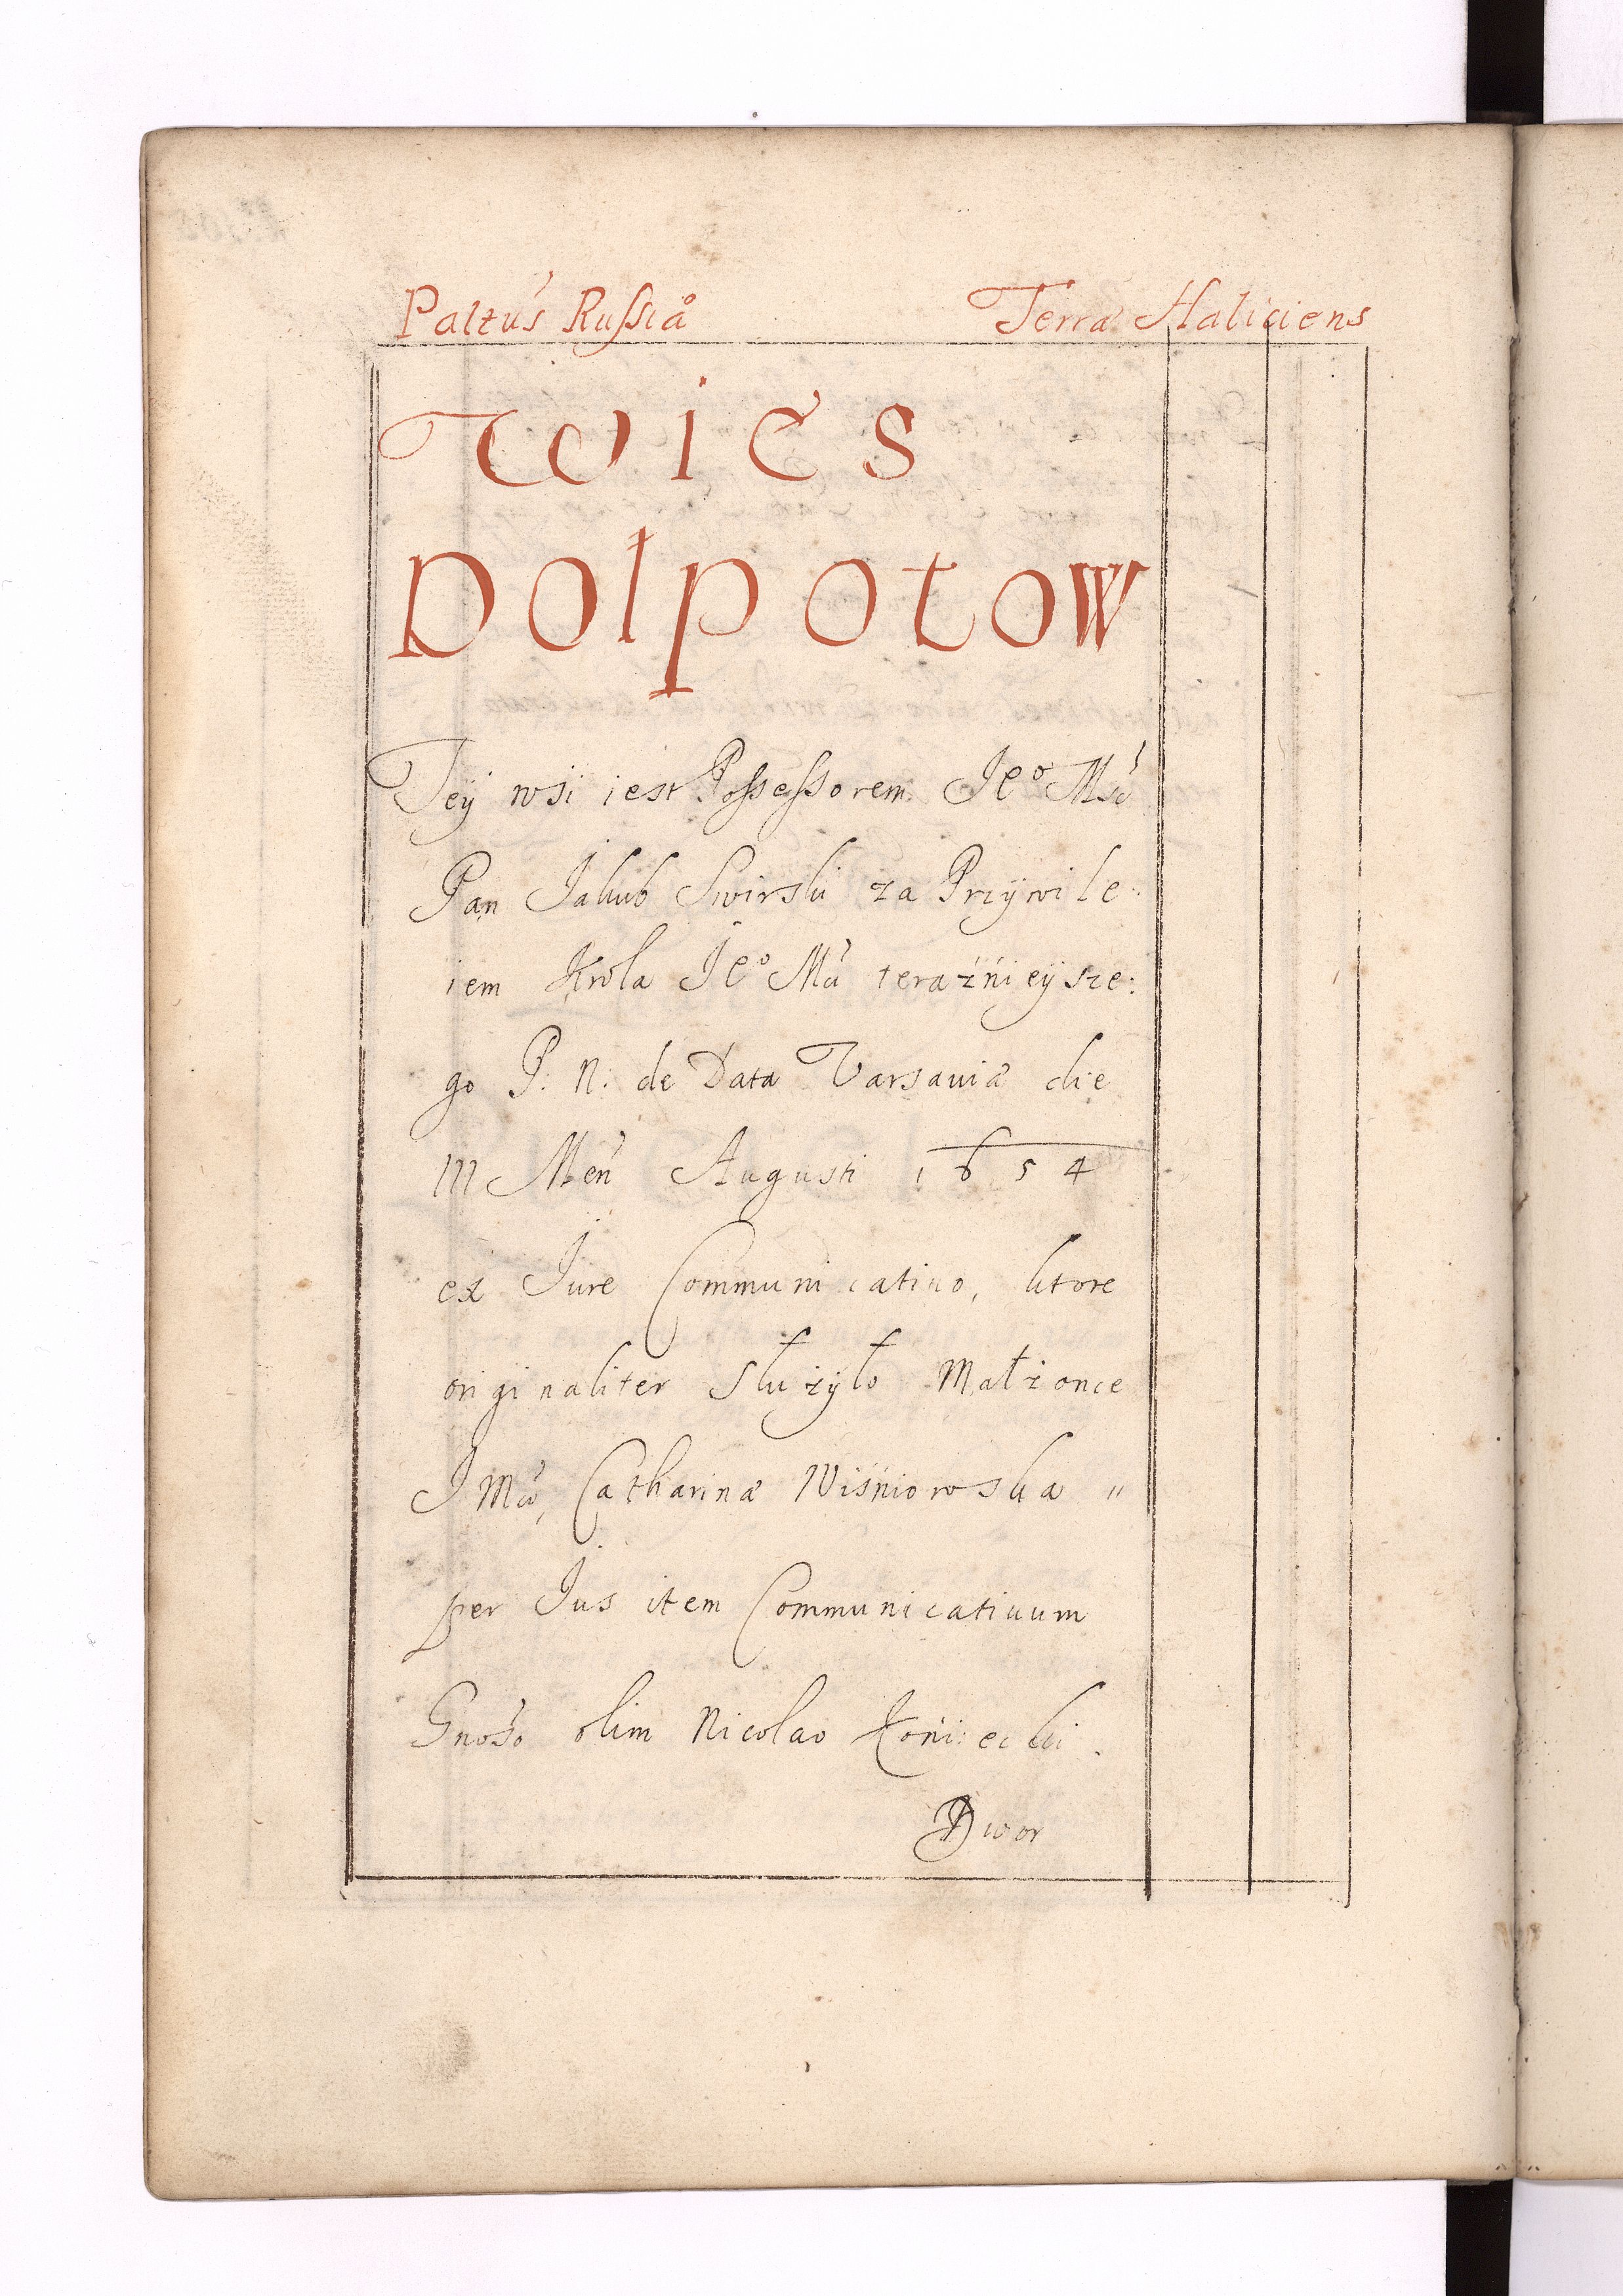 Paltus Russiæ Terræ Haliciens
Wies
Dolpotow
Tey wsi iest Possessorem Je° Msć
Pan Jakub Swirski za Przywile:
iem Krola Je° Mći teraźnieysze:
go P: N: de Data Varsaviæ die
III Men Augusti 1654
ex Jure Communicativo, ktore
originaliter służyło Małżonce
J Mći, Catharinæ Wiśniowska "
per Jus item Communicativum
Gnoso olim Nicolao Koniecki.
Dwor